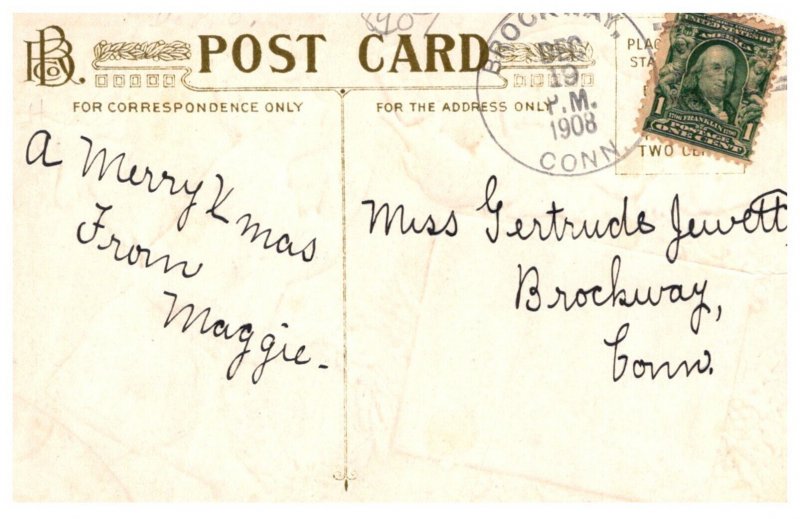 POST CARD
FOR CORRESPONDENCE ONLY
FOR THE ADDRESS ONLY
BROCKWAY,
DEC
19
P.M.
1908
CONN.
PLAC
STA
TWO CEN
UNITED STATES OF
AMERICA
1 FRANKLIN 1
POSTAGE
ONE CENT
A Merry Xmas
From
Maggie.
Miss Gertrude Jewett,
Brockway,
Conn.